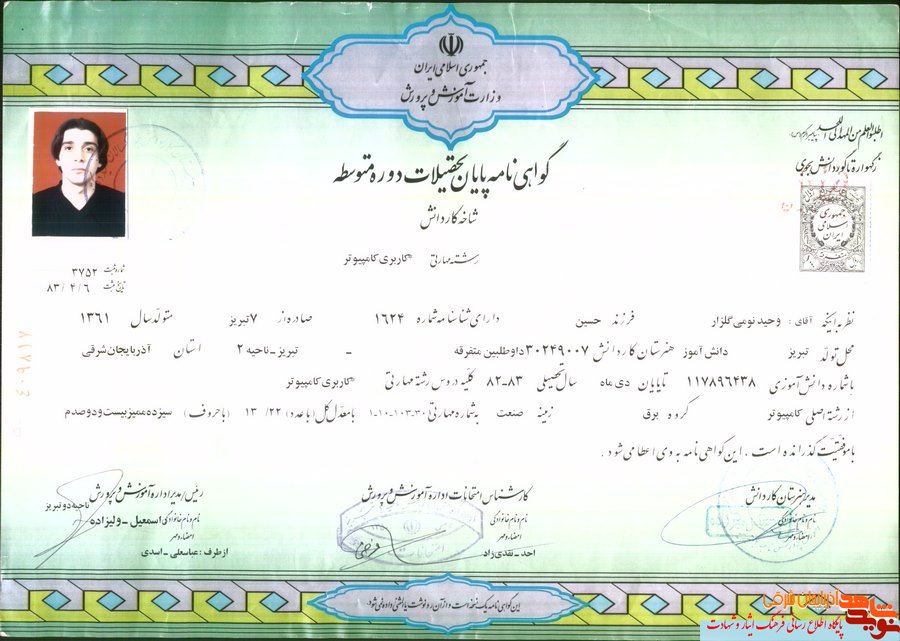 جمهوری اسلامی ایران
وزارت آموزش و پرورش
اطلبوا العلم من المهد الی اللحد
ز گهواره تا گور دانش بجوی
گواهی نامه پایان تحصیلات دوره متوسطه
شاخه کار دانش
جمهوری اسلامی ایران
رشته مهارتی کاربری کامپیوتر
شماره ثبت ۳۷۵۲
تاریخ ثبت ۸۳/۴/۶
نظر به اینکه آقای : وحید نومی گلزار فرزند حسین دارای شناسنامه شماره ۱۶۲۴ صادره از ۷ تبریز متولد سال ۱۳۶۱
محل تولد تبریز دانش آموز هنرستان کاردانش ۳۰۲۴۹۰۰۷ داوطلبین متفرقه - تبریز-ناحیه ۲ استان آذربایجان شرقی
با شماره دانش آموزی ۱۱۷۸۹۶۴۳۸ تا پایان دی ماه سال تحصیلی ۸۳-۸۲ کلیه دروس رشته مهارتی کاربری کامپیوتر
از رشته اصلی کامپیوتر گروه برق زمینه صنعت به شماره مهارتی ۳۰-۱۰۳-۱۰-۱ با معدل کل (با عدد) ۱۳/۲۲ (با حروف) سیزده ممیز بیست و دو صدم
با موفقیت گذرانده است . این گواهی نامه به وی اعطا می شود .
۴۰۹۸۱۷
مدیر هنرستان کاردانش
نام و نام خانوادگی
امضاء و مهر
کارشناس امتحانات اداره آموزش و پرورش
نام و نام خانوادگی
امضاء و مهر
احد-نقدی زاد
رئیس/مدیر اداره آموزش و پرورش
ناحیه دو تبریز
نام و نام خانوادگی اسمعیل-ولیزاده
امضاء و مهر
از طرف : عباسعلی-اسدی
این گواهی نامه یک نسخه است و از آن رونوشت یا المثنی داده نمی شود.
نوید شاهد
آذربایجان شرقی
پایگاه اطلاع رسانی فرهنگ ایثار و شهادت